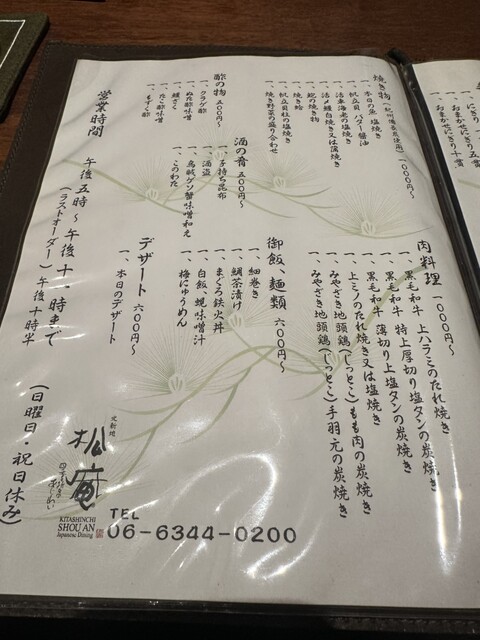 焼き物(紀州備長炭使用) 一〇〇〇円〜
一、本日の魚 塩焼き
一、帆立貝 バター醤油
一、活車海老の塩焼き
一、活〆鰻白焼き又は蒲焼き
一、鮑の焼き物
一、焼き蛤
一、帆立貝柱の塩焼き
一、焼き野菜の盛り合わせ
肉料理 一〇〇〇円〜
一、黒毛和牛 上ハラミのたれ焼き
一、黒毛和牛 特上厚切り塩タンの炭焼き
一、黒毛和牛 薄切り上塩タンの炭焼き
一、上ミノのたれ焼き又は塩焼き
一、みやざき地頭鶏(じっとこ)もも肉の炭焼き
一、みやざき地頭鶏(じっとこ)手羽元の炭焼き
酢の物 五〇〇円〜
一、クラゲ酢
一、ぬた酢味噌
一、鰻ざく
一、たこ酢味噌
一、もずく酢
酒の肴 五〇〇円〜
一、子持ち昆布
一、酒盗
一、烏賊ゲソ蟹味噌和え
一、このわた
御飯、麺類 六〇〇円〜
一、細巻き
一、鯛茶漬け
一、まぐろ鉄火丼
一、白飯 蜆味噌汁
一、梅にゅうめん
デザート 六〇〇円〜
一、本日のデザート
営業時間
午後五時〜午後十一時まで
(ラストオーダー)午後十時半
(日曜日・祝日休み)
北新地
松庵
KITASHINCHI
SHOU AN
Japanese Dining
TEL
06-6344-0200
一、にぎり一
一、おまかせにぎり十貫
一、おまかせ